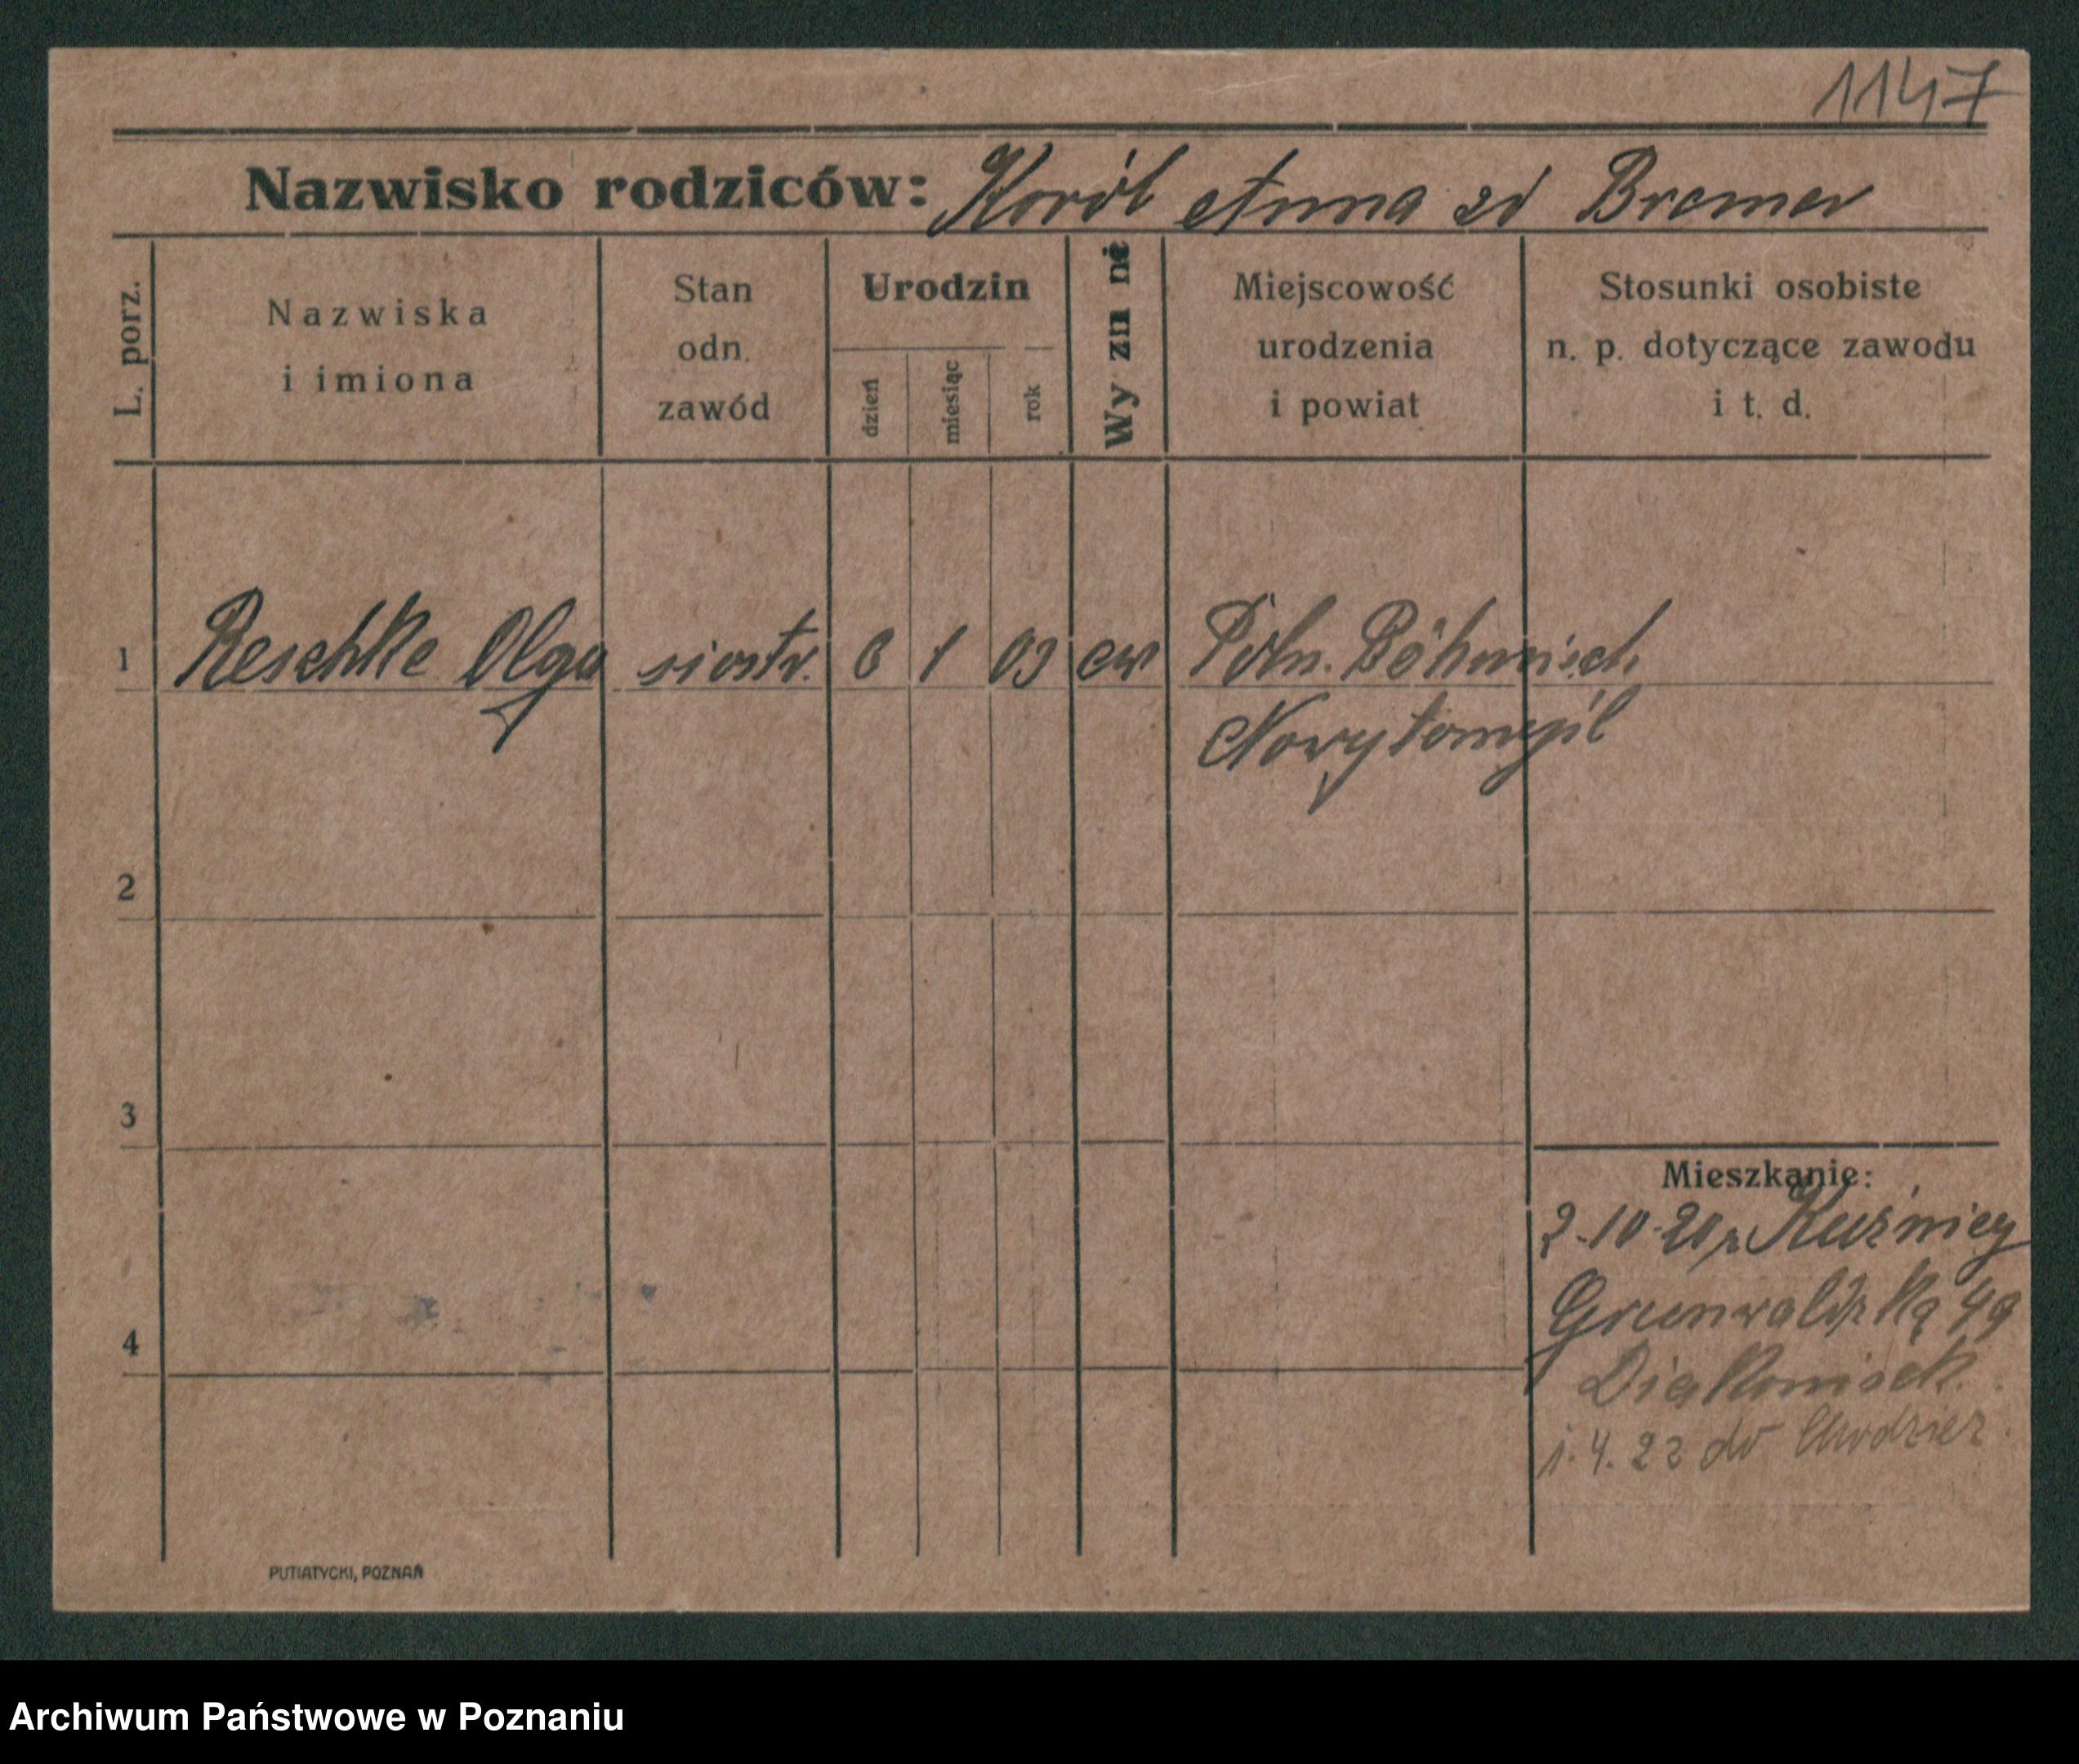 1147
Nazwisko rodziców: Karól Anna zd Bremer
L. porz.
Nazwiska
i imiona
Stan
odn.
zawód
Urodzin
dzień
miesiąc
rok
Wy zn nie
Miejscowość
urodzenia
i powiat
Stosunki osobiste
n. p. dotyczące zawodu
i t. d.
1 Reschke Olga siostr. 6 1 03 ew Poln. Böhmisch
Nowytomyśl
2
3
4
Mieszkanie:
2-10-20 z Kuźnicy
Grunwaldzka 49
Diakonisek.
1.4.23 do Chodzież.
PUTIATYCKI, POZNAŃ
Archiwum Państwowe w Poznaniu